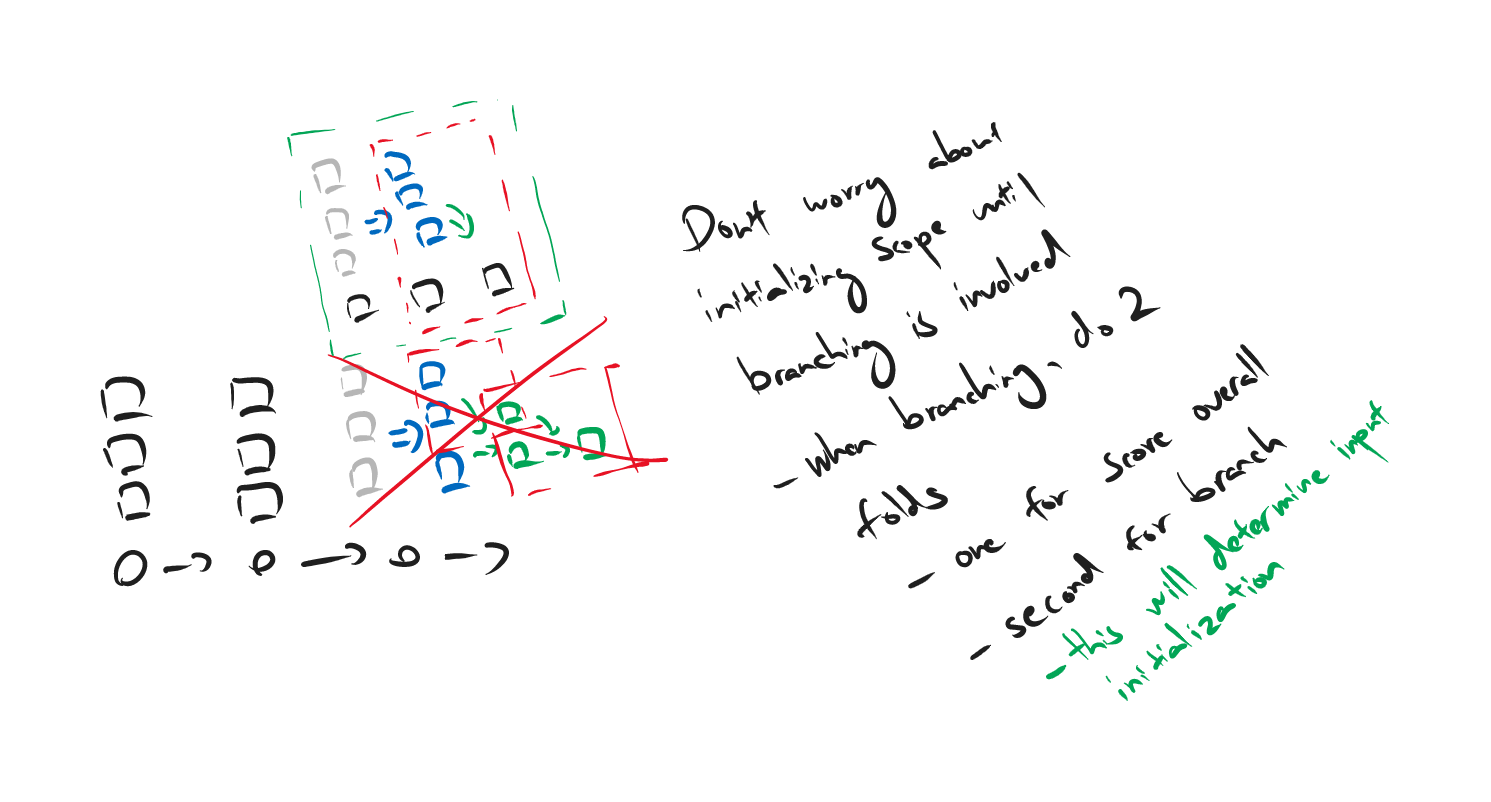 Don't worry about
initializing scope until
branching is involved
- when branching, do 2
folds
- one for score overall
- second for branch
- this will determine input
initialization